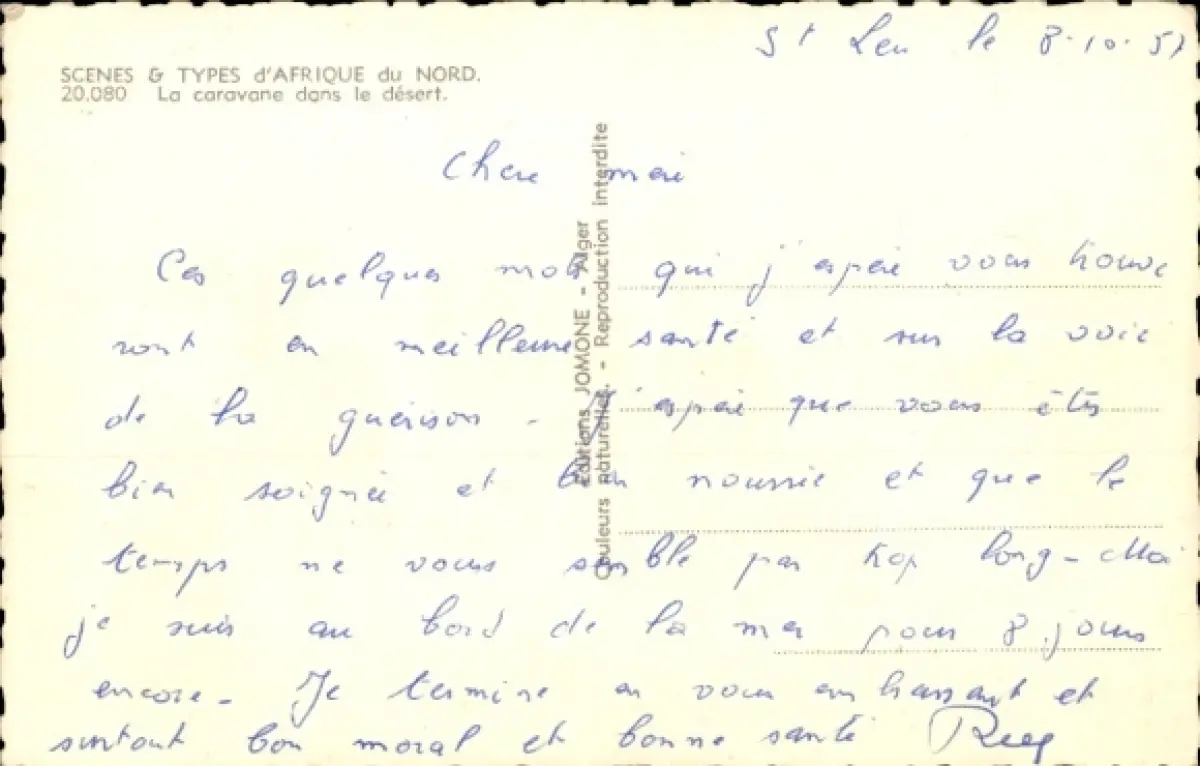 St Leu le 8.10.57
SCENES & TYPES d'AFRIQUE du NORD.
20.080 La caravane dans le désert.
Chère mère
Ces quelques mots qui j'espère vous trouve
ront en meilleure santé et sur la voie
de la guérison - J'espère que vous êtes
bien soignée et bien nourrie et que le
temps ne vous semble pas trop long - Moi
je suis au bord de la mer pour 8 jours
encore - Je termine en vous embrassant et
surtout bon moral et bonne santé
Editions JOMONE - Alger
Couleurs naturelles. - Reproduction interdite